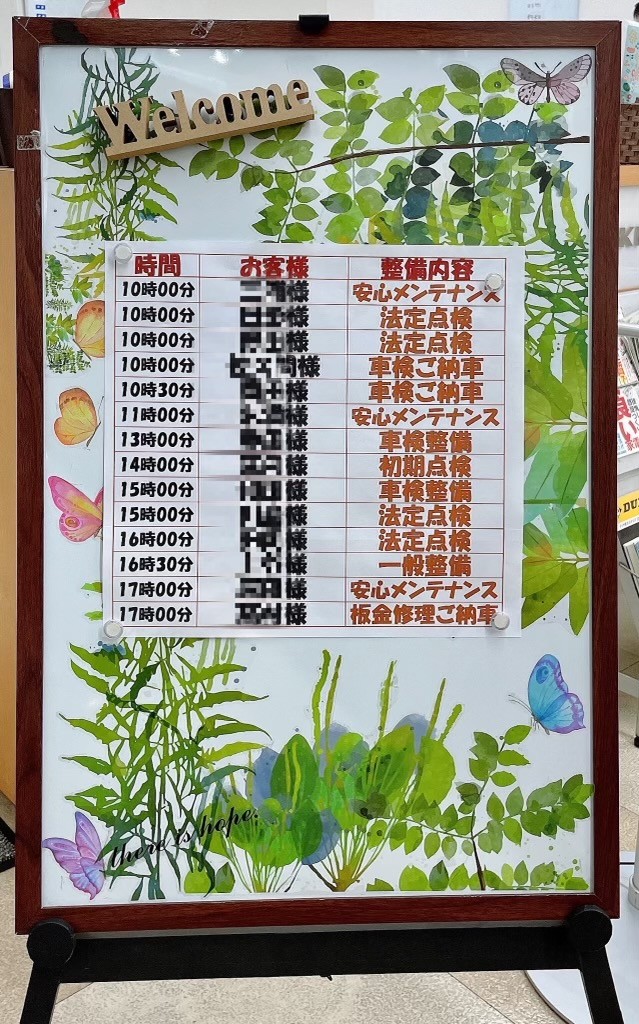 Welcome
時間 お客様 整備内容
10時00分 様 安心メンテナンス
10時00分 様 法定点検
10時00分 様 法定点検
10時00分 様 車検ご納車
10時30分 様 車検ご納車
11時00分 様 安心メンテナンス
13時00分 様 車検整備
14時00分 様 初期点検
15時00分 様 車検整備
15時00分 様 法定点検
16時00分 様 法定点検
16時30分 様 一般整備
17時00分 様 安心メンテナンス
17時00分 様 板金修理ご納車
there is hope.